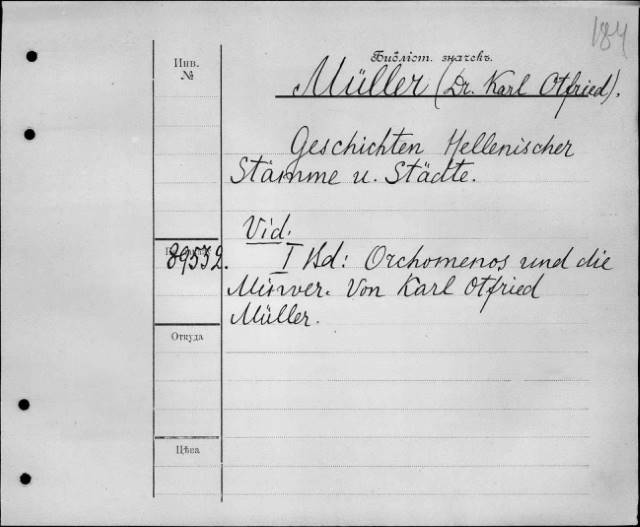 184
Инв.
№
Библіот. значекъ.
Müller (Dr. Karl Otfried).
Geschichten Hellenischer
Stämme u. Städte.
Vid.
89532. I Bd: Orchomenos und die
Minyer. Von Karl Otfried
Müller.
Откуда
Цѣна